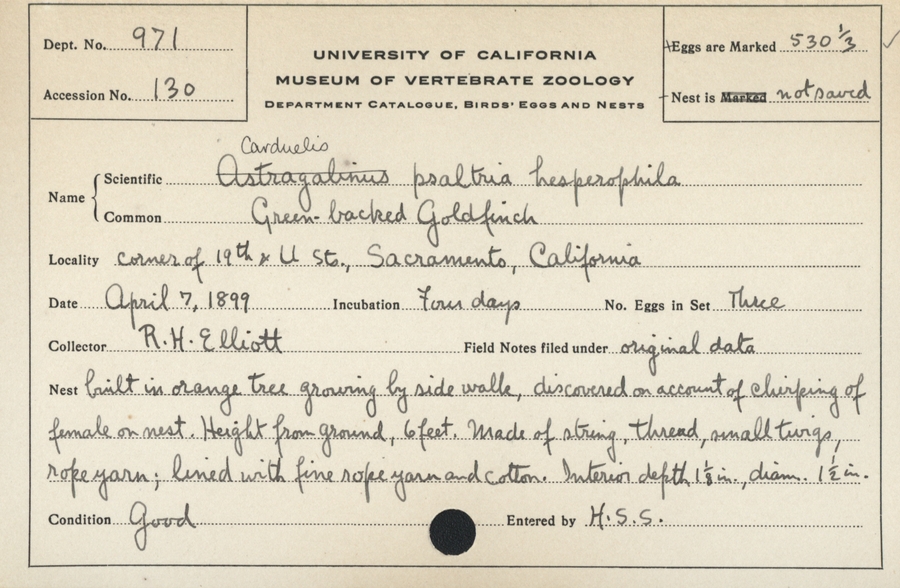 Dept. No. 971
Accession No. 130
UNIVERSITY OF CALIFORNIA
MUSEUM OF VERTEBRATE ZOOLOGY
DEPARTMENT CATALOGUE, BIRDS' EGGS AND NESTS
Eggs are Marked 530 1/3
Nest is Marked not saved
Carduelis
Name Scientific Astragalinus psaltria hesperophila
Common Green-backed Goldfinch
Locality corner of 19th & U Sts., Sacramento, California
Date April 7, 1899 Incubation Four days No. Eggs in Set Three
Collector R.H. Elliott Field Notes filed under original data
Nest built in orange tree growing by side walk, discovered on account of chirping of
female on nest. Height from ground, 6 feet. Made of string, thread, small twigs,
rope yarn; lined with fine rope yarn and cotton. Interior depth 1 1/8 in., diam. 1 1/2 in.
Condition Good Entered by H.S.S.